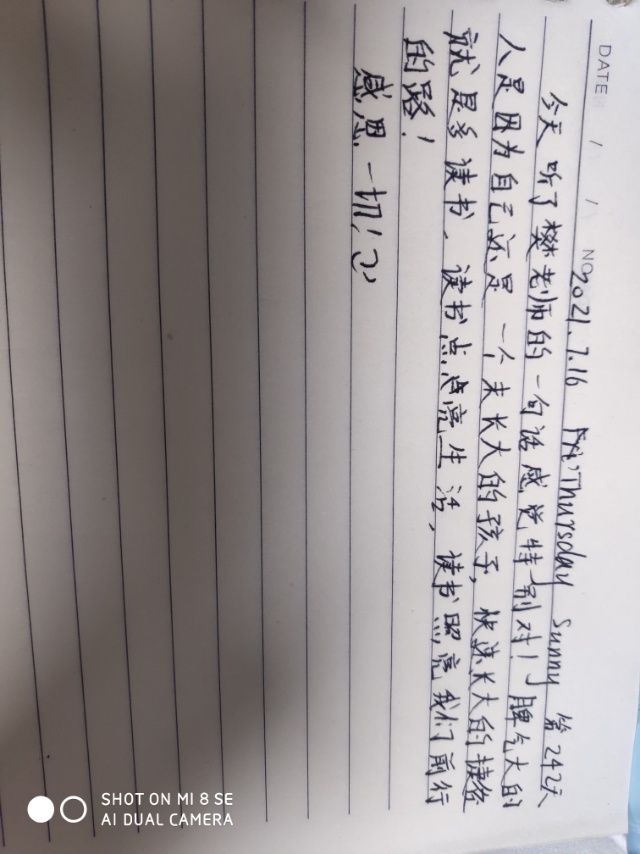 DATE / / NO.
2021.7.16 Thursday Sunny 第242天
今天听了樊老师的一句话感觉特别对！脾气大的
人是因为自己还是一个未长大的孩子，快速长大的捷径
就是多读书，读书点点亮生活，读书照亮我们前行
的路！
感恩一切！
SHOT ON MI 8 SE
AI DUAL CAMERA